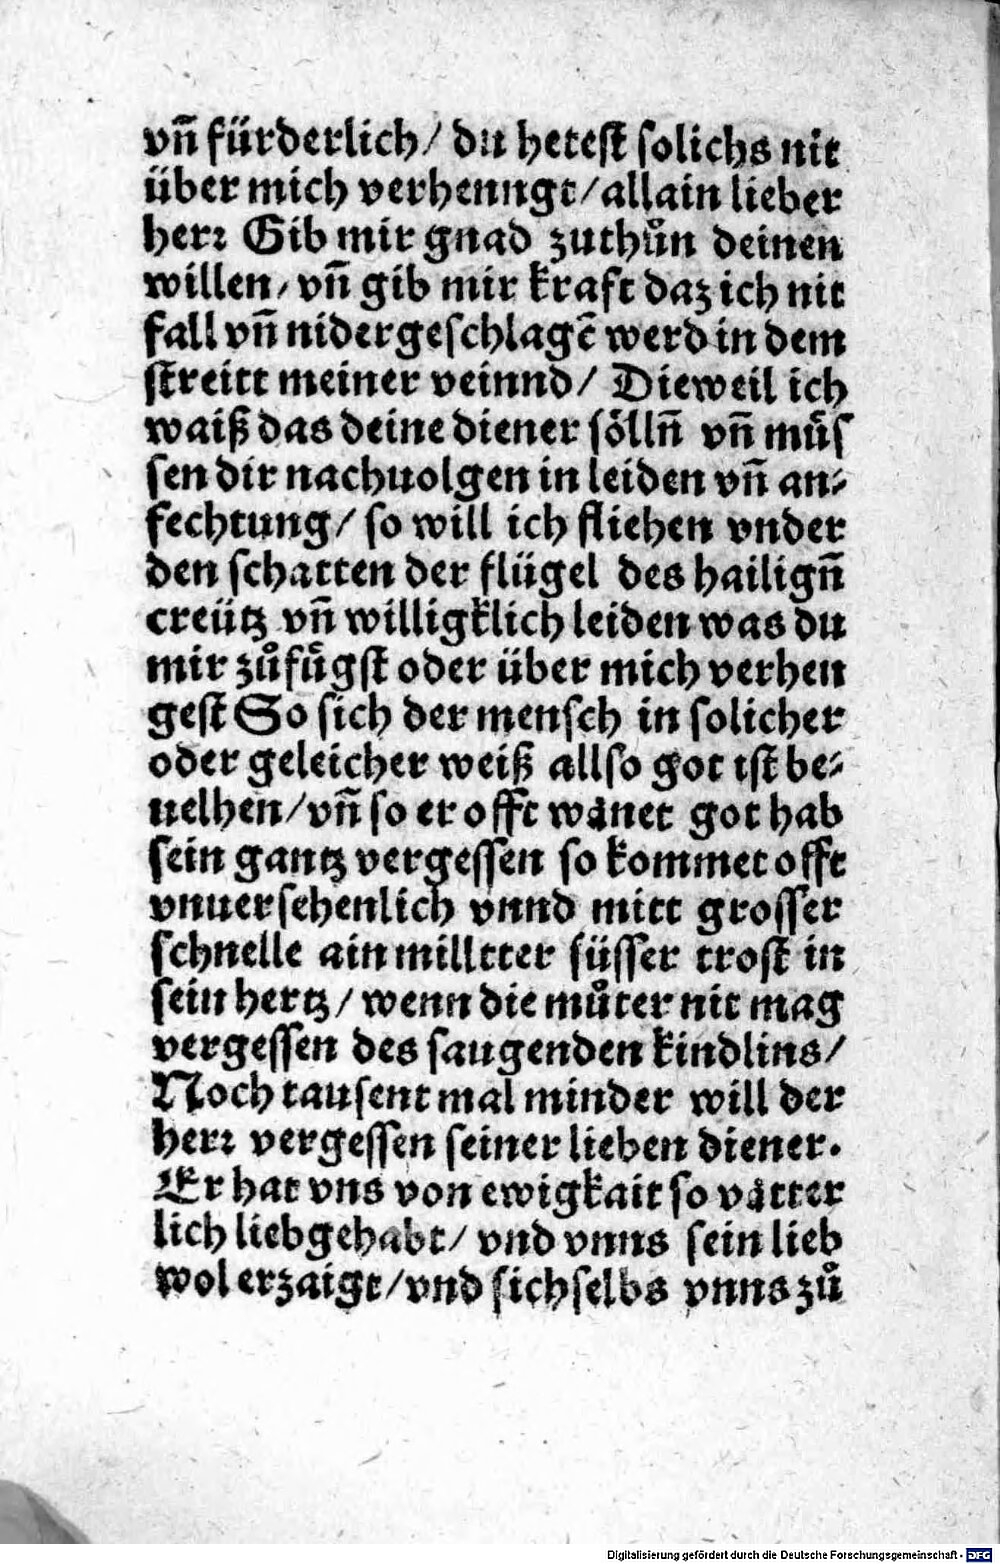 vñ fürderlich/ du hetest solichs nit
über mich verhenngt/allain lieber
herꝛ Gib mir gnad zuthůn deinen
willen/ vñ gib mir kraft daz ich nit
fall vñ nidergeschlagē werd in dem
streitt meiner veinnd/ Dieweil ich
waiß das deine diener söllñ vñ müs
sen dir nachuolgen in leiden vñ an⸗
fechtung/ so will ich fliehen vnder
den schatten der flügel des hailigñ
creütz vñ willigklich leiden was du
mir zůfügst oder über mich verhen
gest So sich der mensch in solicher
oder geleicher weiß allso got ist be⸗
uelhen/vñ so er offt wånet got hab
sein gantz vergessen so kommet offt
vnuersehenlich vnnd mitt grosser
schnelle ain milltter süsser trost in
sein hertz/ wenn die můter nit mag
vergessen des saugenden kindlins/
Noch tausent mal minder will der
herꝛ vergessen seiner lieben diener.
Er hat vns von ewigkait so våtter
lich liebgehabt/ vnd vnns sein lieb
wol erzaigt/vnd sichselbs vnns zů
Digitalisierung gefördert durch die Deutsche Forschungsgemeinschaft - DFG